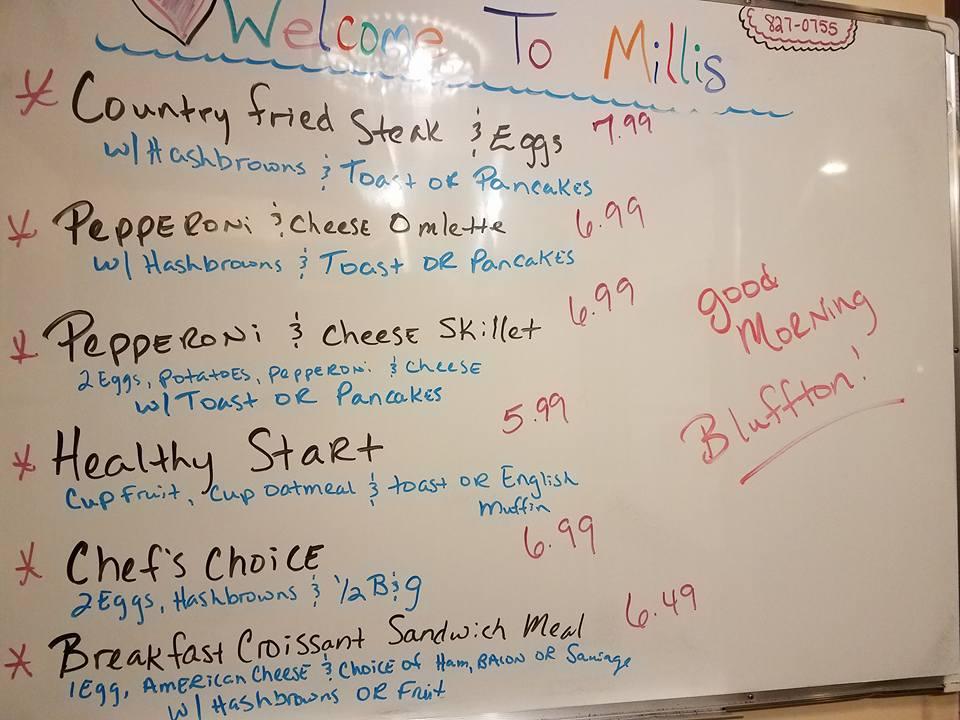 Welcome To Millis
827-0755
* Country fried Steak & Eggs 7.99
w/ Hashbrowns & Toast OR Pancakes
* Pepperoni & Cheese Omlette 6.99
w/ Hashbrowns & Toast OR Pancakes
* Pepperoni & Cheese Skillet 6.99
2 Eggs, Potatoes, Pepperoni & Cheese
w/ Toast OR Pancakes
* Healthy Start 5.99
Cup Fruit, Cup Oatmeal & toast OR English
Muffin
* Chef's Choice 6.99
2 Eggs, Hashbrowns & 1/2 B&g
* Breakfast Croissant Sandwich Meal 6.49
1 Egg, American Cheese & Choice of Ham, Bacon OR Sausage
w/ Hashbrowns OR Fruit
good
Morning
Bluffton!